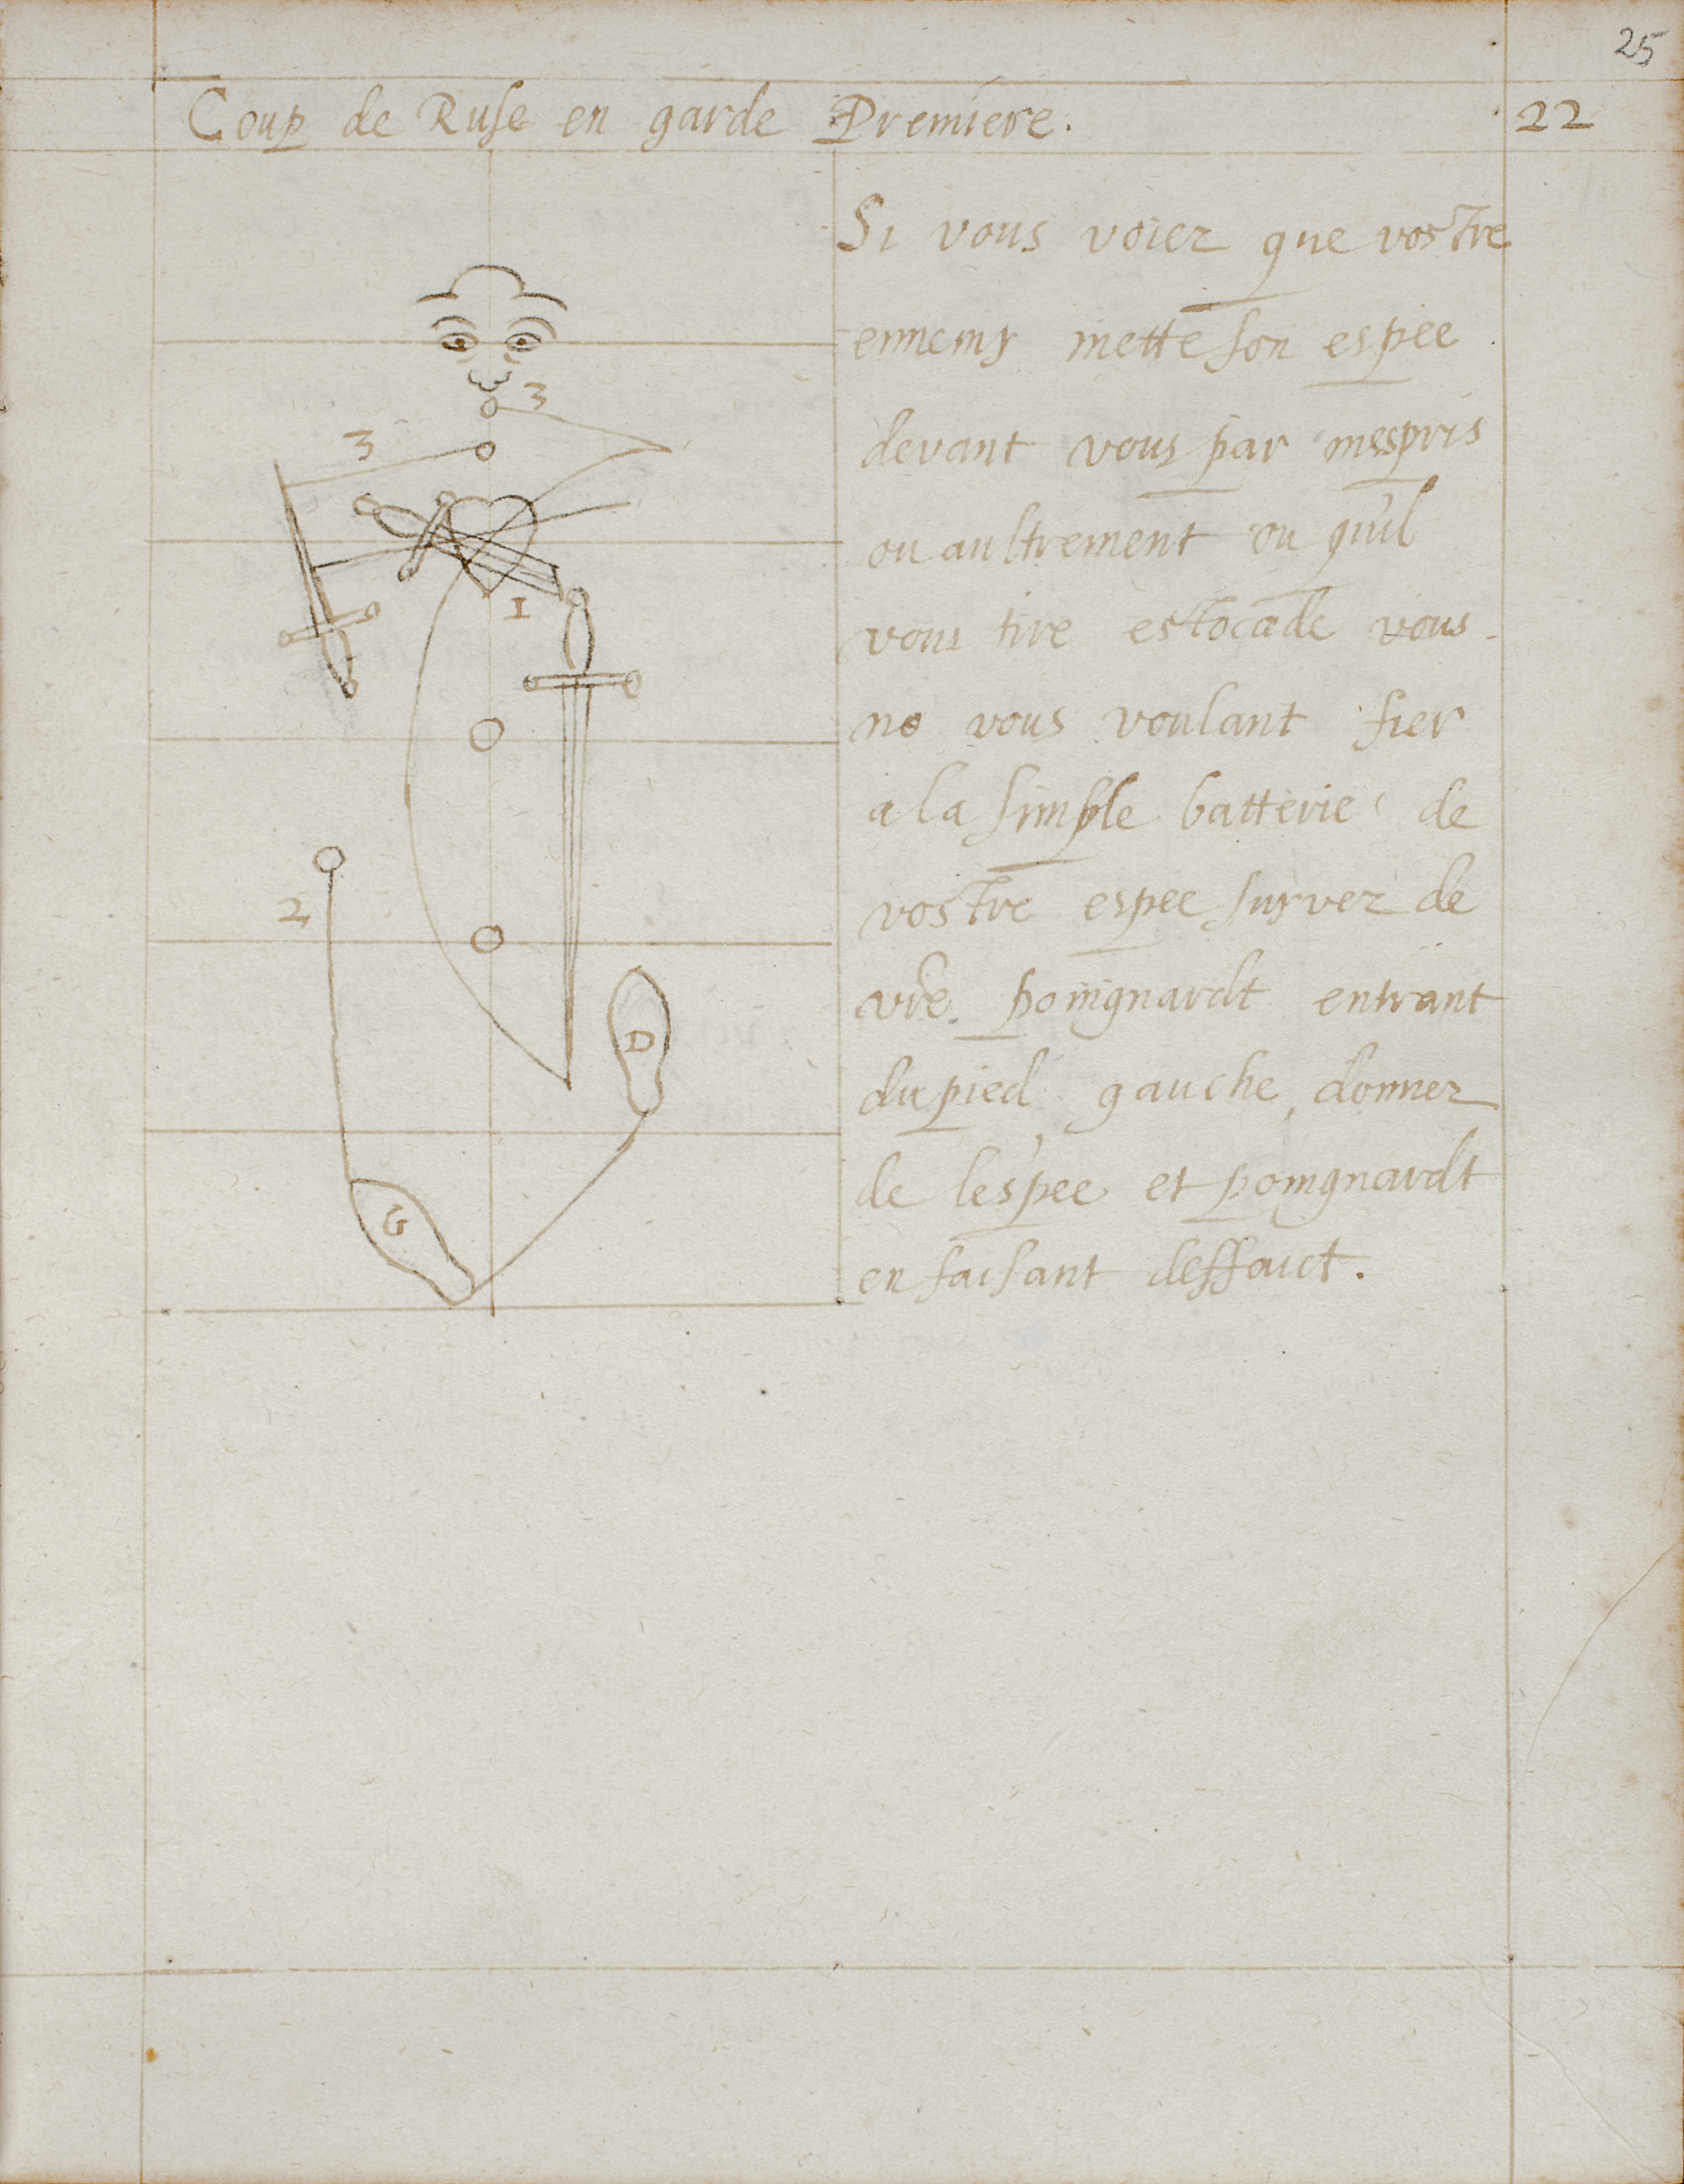 25
Coup de Ruse en garde Premiere.
22
Si vous voiez que vostre
ennemy mette son espee
devant vous par mespris
ou aultrement ou quil
vous tire estocade vous
ne vous voulant fier
a la simple batterie de
vostre espee suyvez de
vre. poingnardt entrant
du pied gauche, donnez
de lespee et poingnardt
en faisant deffaict.
3
3
1
2
D
G